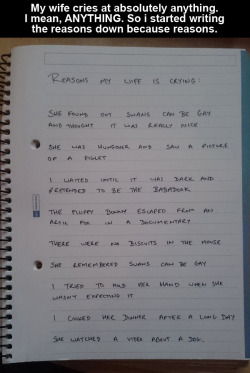 My wife cries at absolutely anything.
I mean, ANYTHING. So i started writing
the reasons down because reasons.
REASONS MY WIFE IS CRYING:
SHE FOUND OUT SWANS CAN BE GAY
AND THOUGHT IT WAS REALLY NICE
SHE WAS HUNGOVER AND SAW A PICTURE
OF A PIGLET
I WAITED UNTIL IT WAS DARK AND
PRETENDED TO BE THE BABADOOK
THE FLUFFY BUNNY ESCAPED FROM AN
ARCTIC FOX IN A DOCUMENTARY
THERE WERE NO BISCUITS IN THE HOUSE
SHE REMEMBERED SWANS CAN BE GAY
I TRIED TO HOLD HER HAND WHEN SHE
WASN'T EXPECTING IT
I COOKED HER DINNER AFTER A LONG DAY
SHE WATCHED A VIDEO ABOUT A DOG.